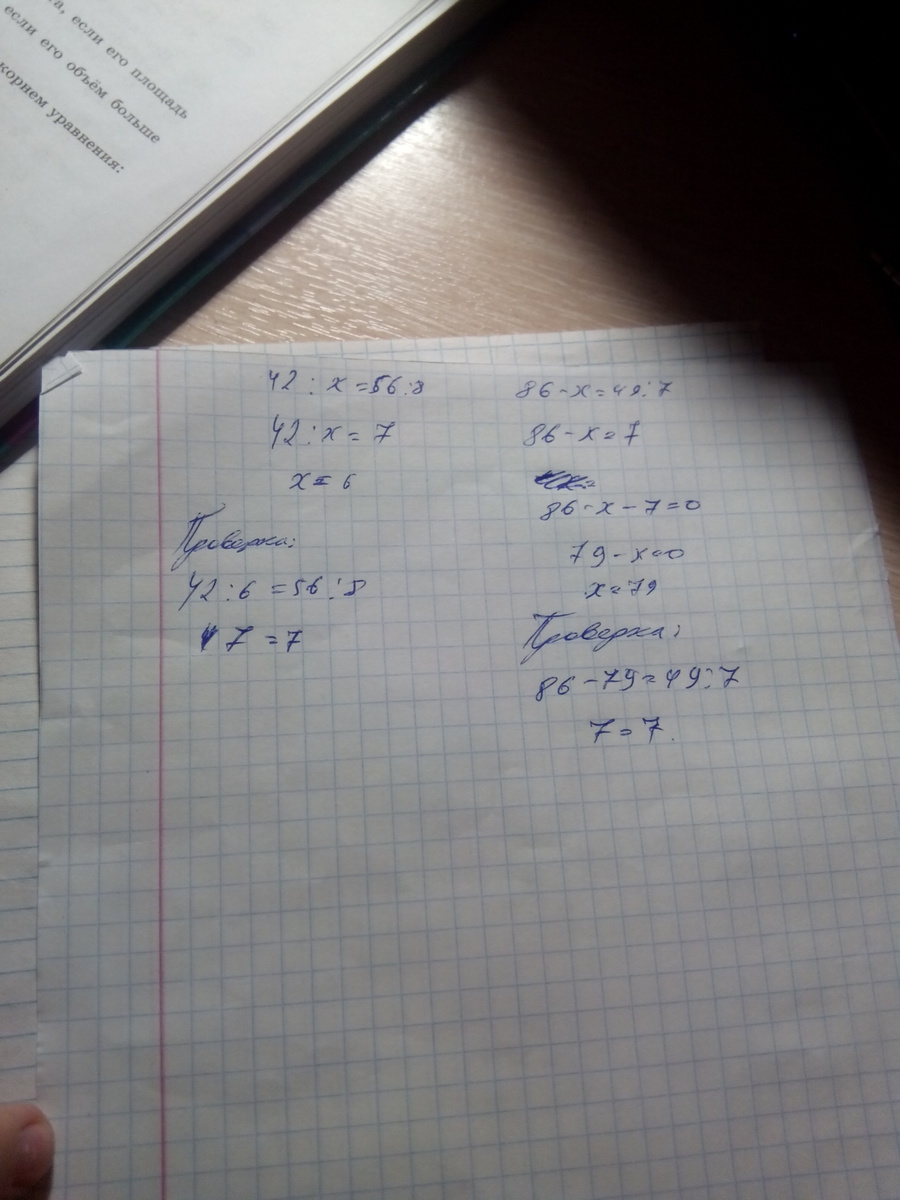 та, если его площадь
если его объём больше
корнем уравнения:
42 : x = 56 : 8
42 : x = 7
x = 6
Проверка:
42 : 6 = 56 : 8
7 = 7
86 - x = 49 : 7
86 - x = 7
86 - x - 7 = 0
79 - x = 0
x = 79
Проверка:
86 - 79 = 49 : 7
7 = 7.